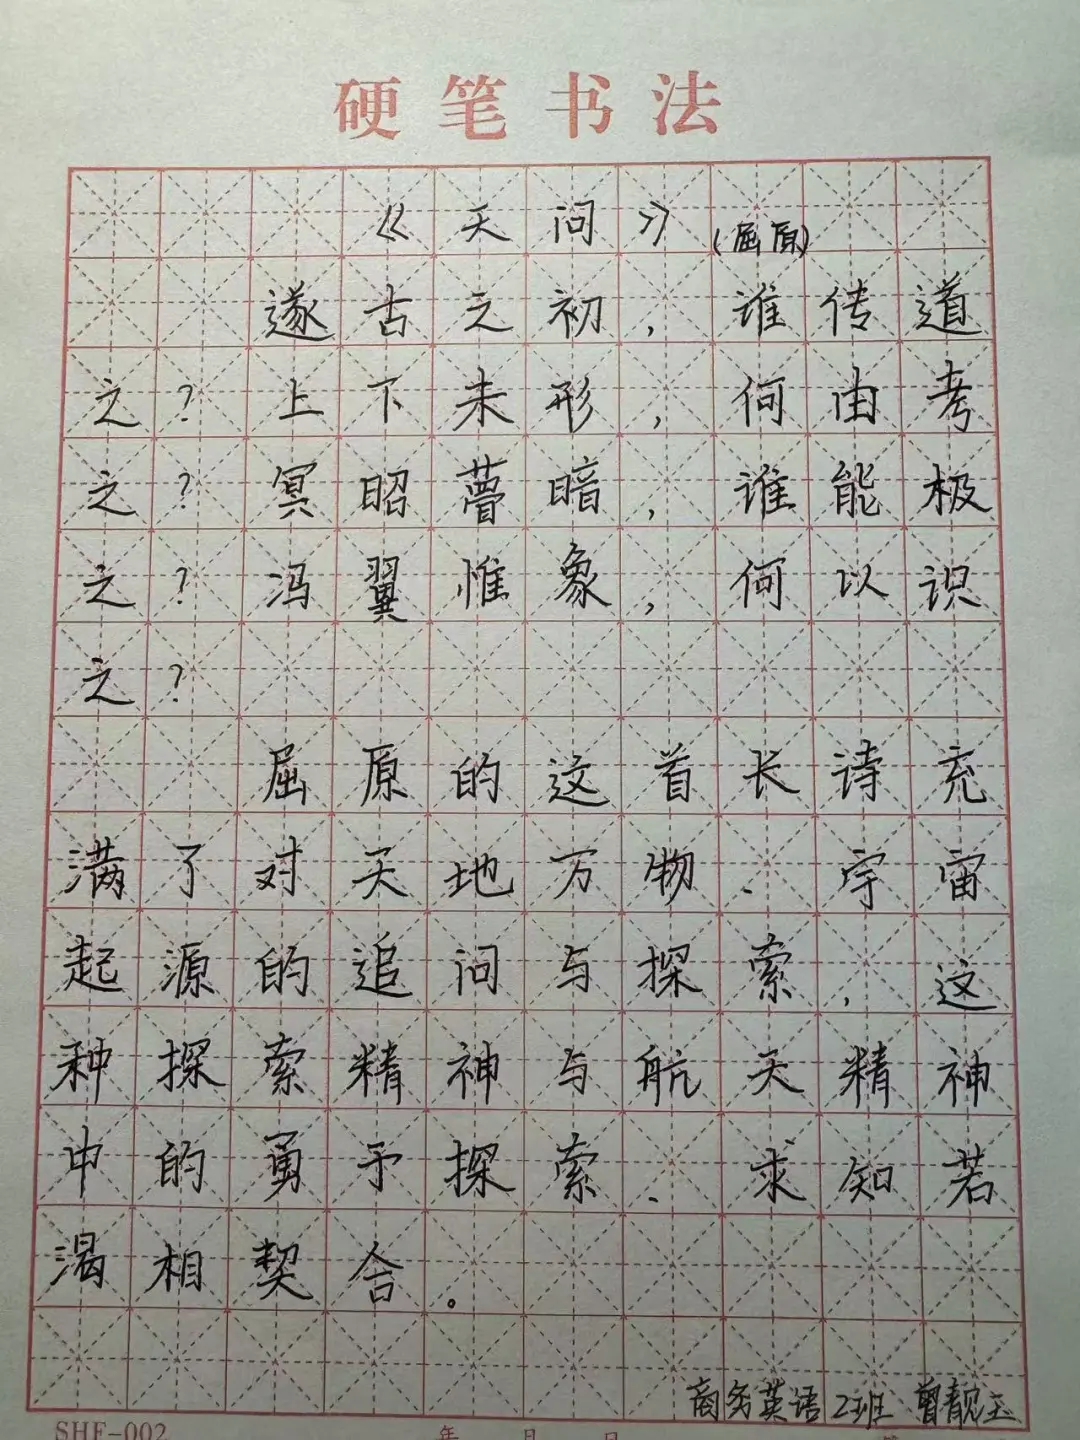 硬笔书法
《天问》(屈原)
遂古之初，谁传道
之？上下未形，何由考
之？冥昭瞢暗，谁能极
之？冯翼惟象，何以识
之？
屈原的这首长诗充
满了对天地万物、宇宙
起源的追问与探索，这
种探索精神与航天精神
中的勇于探索、求知若
渴相契合。
商务英语2班 曾靓玉
SHF-002 年 月 日